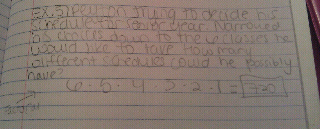 Ex. 3) Person trying to decide his
schedule for senior year. Narrowed
his choices down to 6 classes he
would like to have. How many
different schedules could he possibly
have?
6 · 5 · 4 · 3 · 2 · 1 = 720